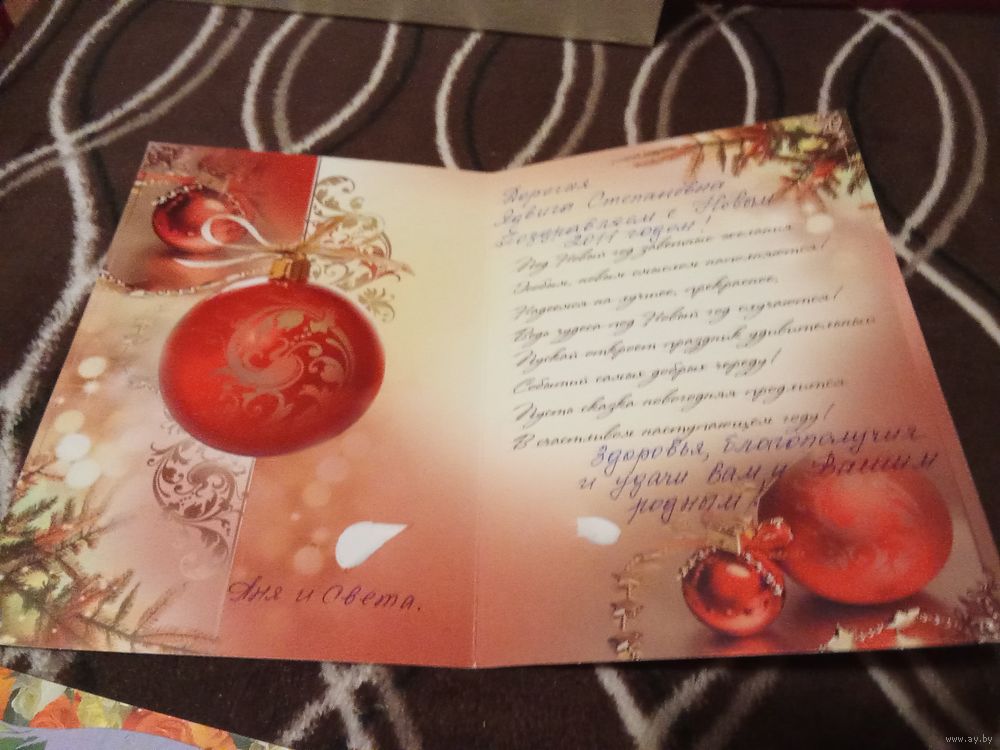 Дорогая
Ядвига Степановна
Поздравляем с Новым
2017 годом!
Под Новый год заветные желания
Особым, новым смыслом наполняются!
Надеемся на лучшее, прекрасное,
Ведь чудеса под Новый год случаются!
Пускай откроет праздник удивительный
Событий самых добрых череду!
Пусть сказка новогодняя продлится
В счастливом наступающем году!
Здоровья, благополучия
и удачи Вам и Вашим
родным
Аня и Света.
www.ay.by